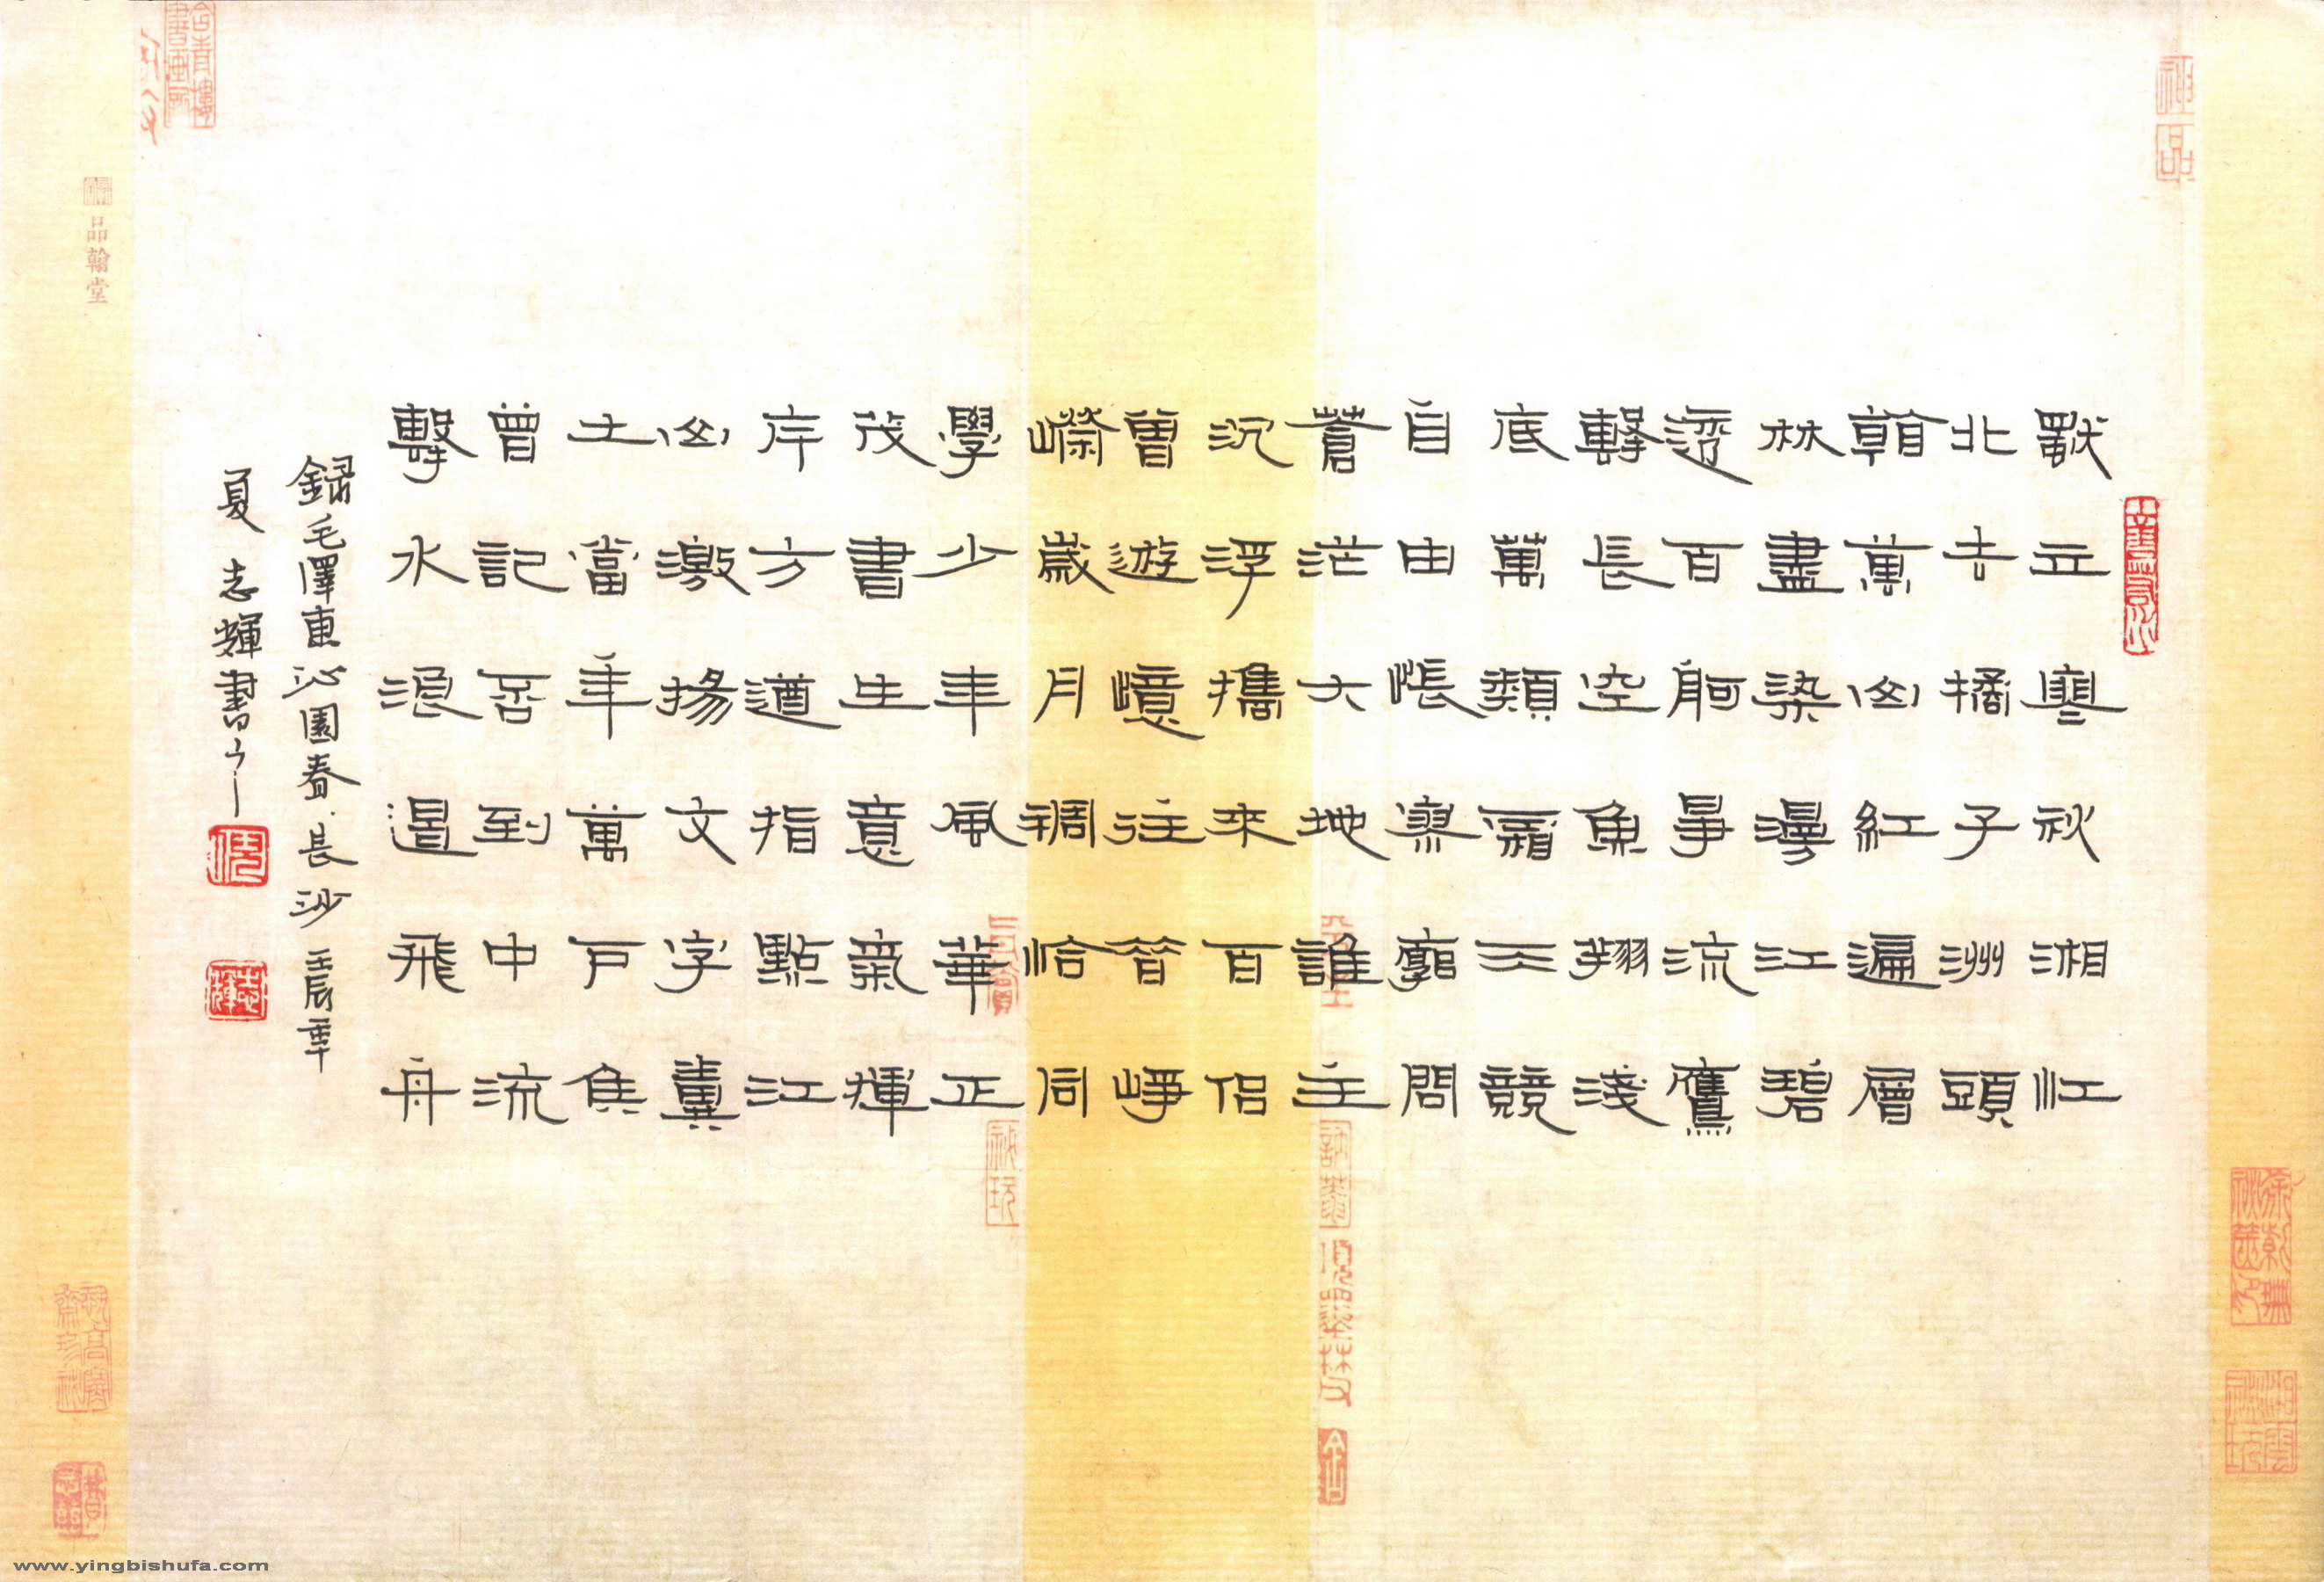 神品
獨立寒秋湘江
北去橘子洲頭
看萬山紅遍層
林盡染漫江碧
透百舸爭流鷹
擊長空魚翔淺
底萬類霜天競
自由悵寥廓問
蒼茫大地誰主
沉浮攜來百侶
曾遊憶往昔崢
嶸歲月稠恰同
學少年風華正
茂書生意氣揮
斥方遒指點江
山激揚文字糞
土當年萬戶侯
曾記否到中流
擊水浪遏飛舟
錄毛澤東沁園春·長沙 壬辰年
夏志輝書
品翰堂
www.yingbishufa.com